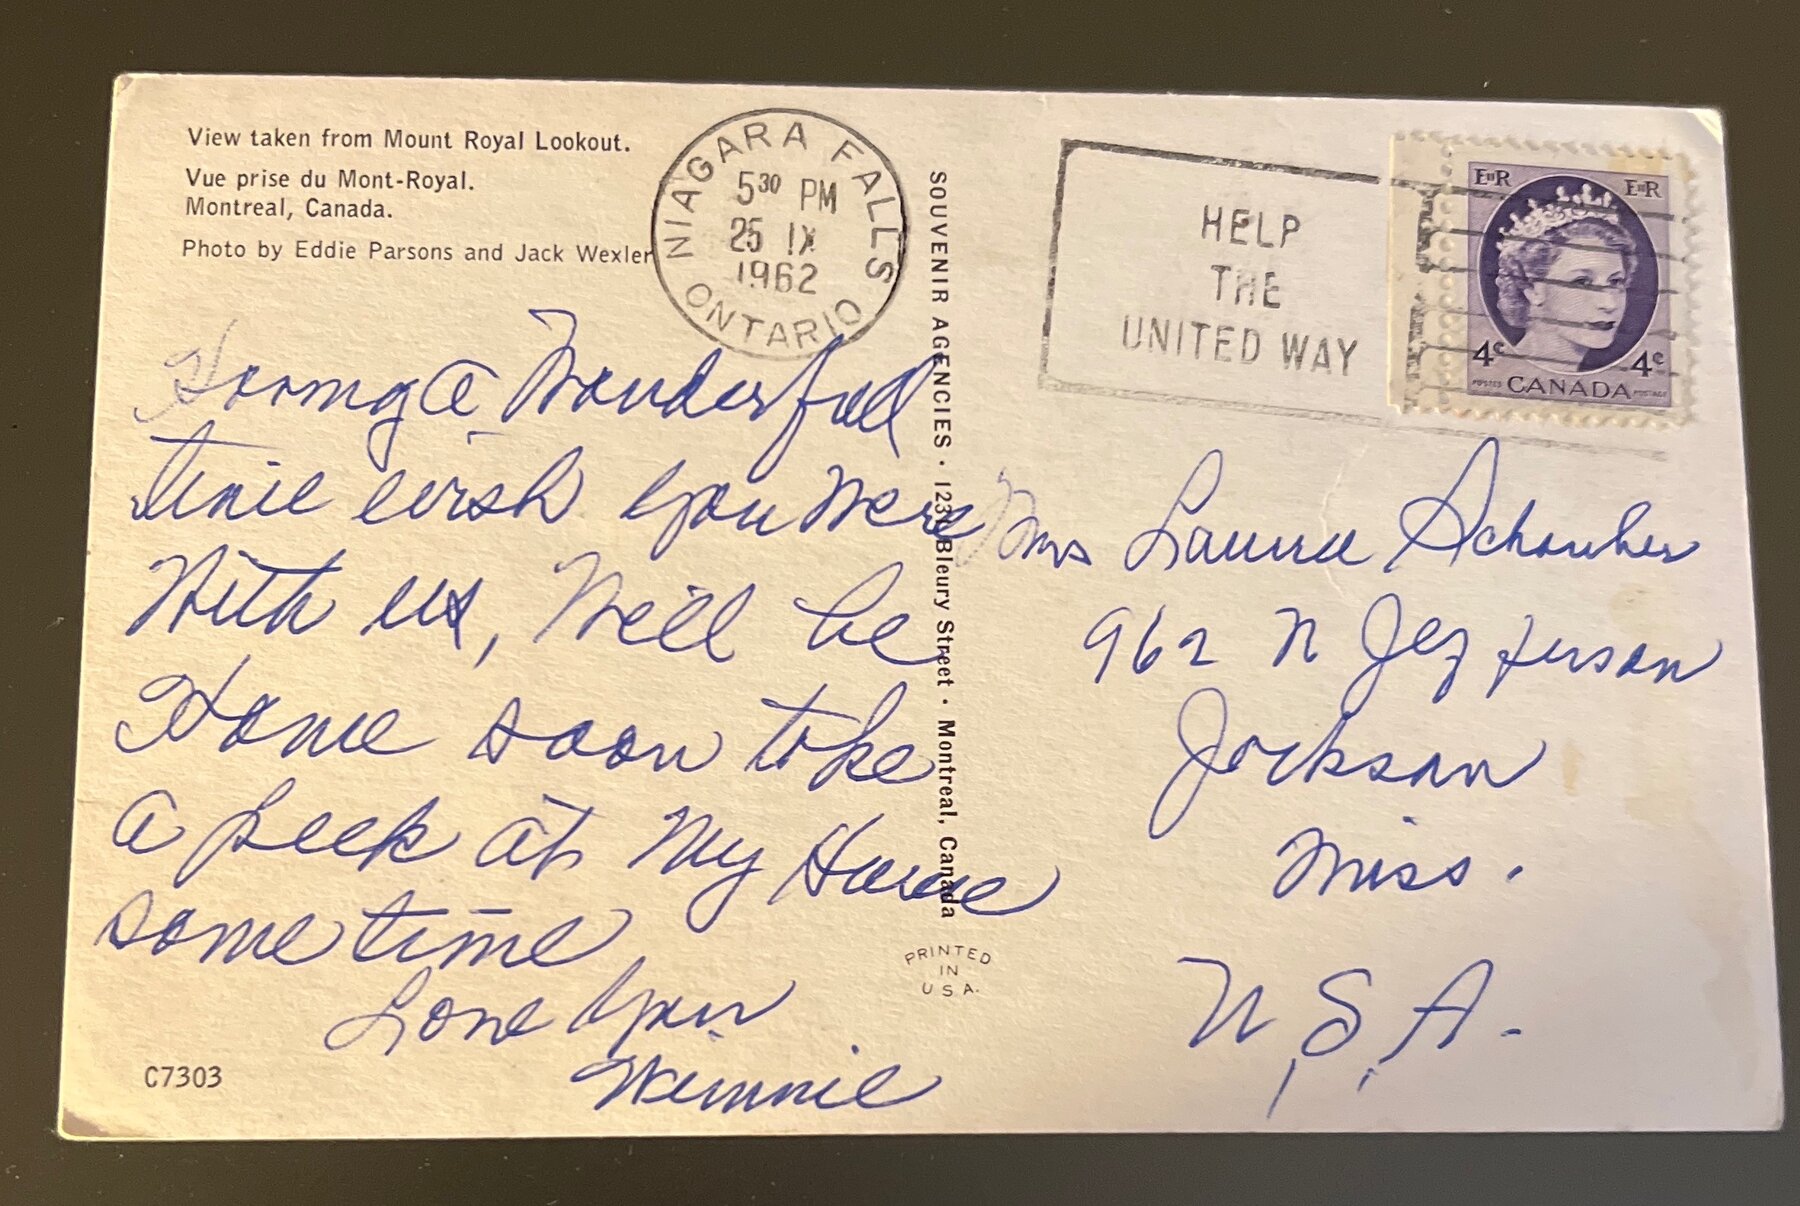 View taken from Mount Royal Lookout.
Vue prise du Mont-Royal.
Montreal, Canada.
Photo by Eddie Parsons and Jack Wexler
NIAGARA FALLS
5 30 PM
25 IX
1962
ONTARIO
HELP
THE
UNITED WAY
EIIR EIIR
4c 4c
POSTES CANADA POSTAGE
Having a Wonderfull
time wish you Were
With us, Will be
Home soon take
a peek at My House
some time
Love Your
Winnie
C7303
SOUVENIR AGENCIES • Bleury Street • Montreal, Canada
PRINTED
IN
U.S.A.
Mrs
962 N Jefferson
Jackson
Miss.
U, S, A.